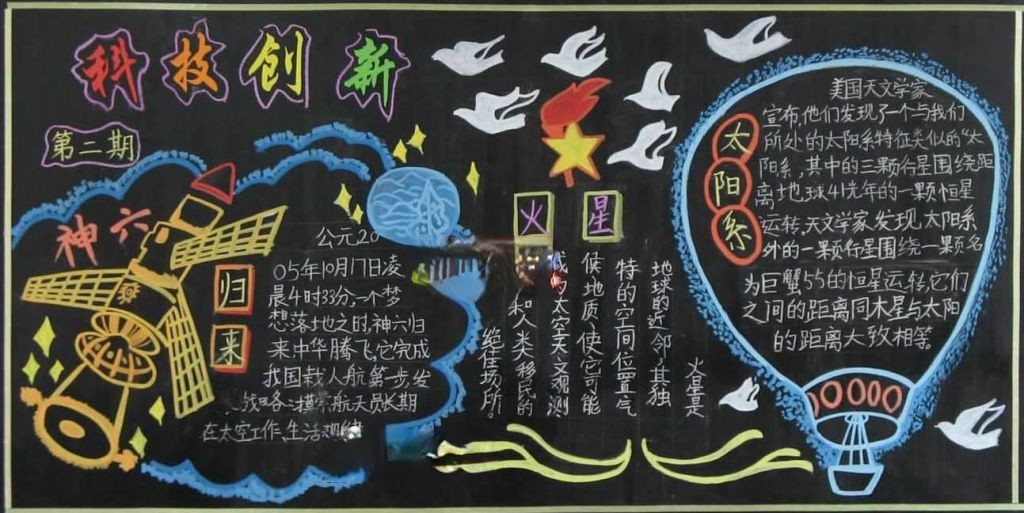 科技创新
第二期
神六
归来
公元20
05年10月17日凌
晨4时33分,一个梦
想落地之时,神六归
来中华腾飞,它完成
我国载人航第一步发
战略:探索航天员长期
在太空工作、生活
火星
火星是
地球的近邻,其独
特的空间位置气
候地质,使它可能
太空天文观测
和人类移民的
绝佳场所!
太阳系
美国天文学家
宣布,他们发现了一个与我们
所处的太阳系特征类似的"太
阳系,其中的三颗行星围绕距
离地球41光年的一颗恒星
运转,天文学家发现,太阳系
外的一颗行星围绕一颗名
为巨蟹55的恒星运转,它们
之间的距离同木星与太阳
的距离大致相等